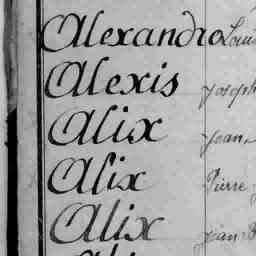 Alexandre Louis
Alexis Joseph
Alix Jean
Alix Pierre
Alix Jean B